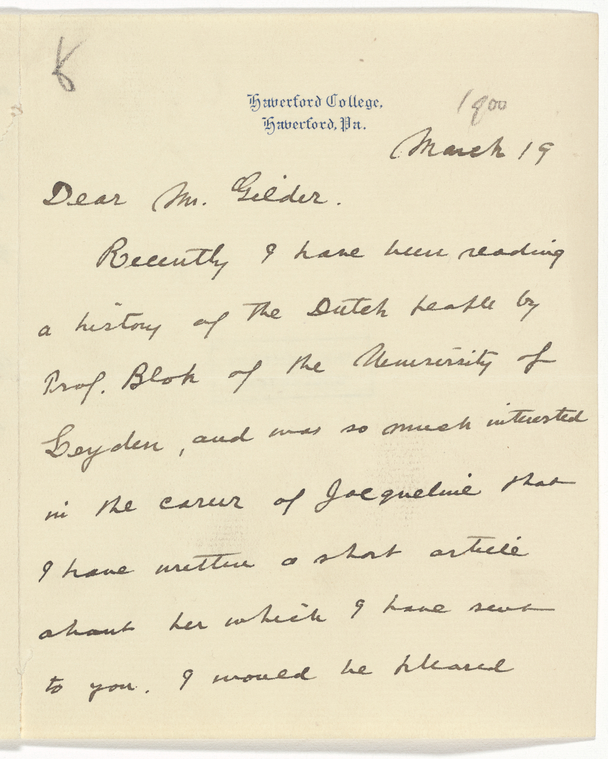 Haverford College,
Haverford, Pa.
1900
March 19
Dear Mr. Gilder.
Recently I have been reading
a history of the Dutch people by
Prof. Blok of the University of
Leyden, and was so much interested
in the career of Jacqueline that
I have written a short article
about her which I have sent
to you. I would be pleased